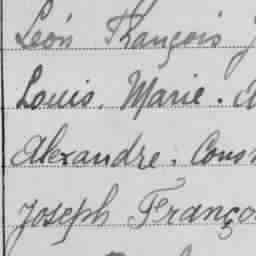 Léon François
Louis. Marie.
Alexandre. Cons
Joseph Franço